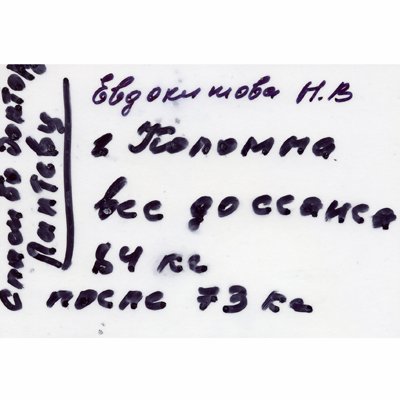 Евдокимова Н.В
г Коломна
вес до сеанса
84 кг
после 73 кг
Спасибо доктору
Лаптеву